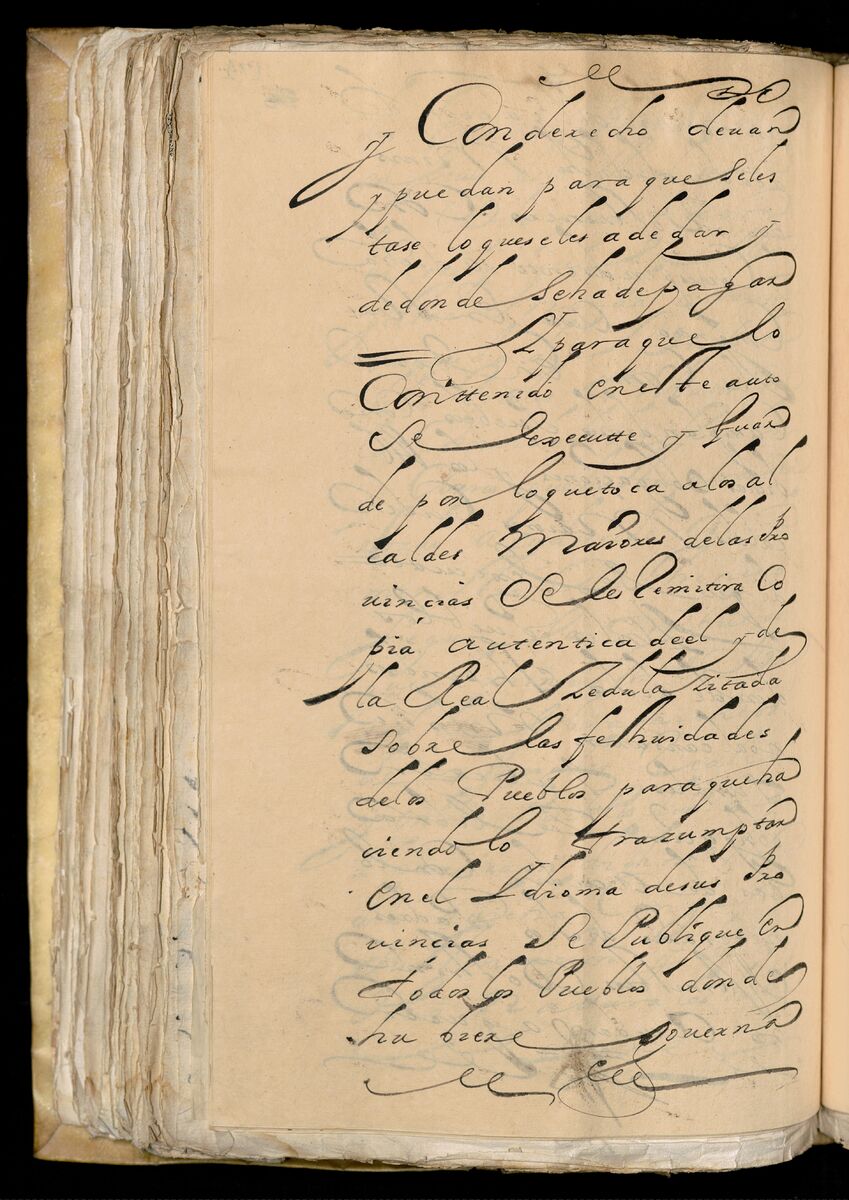 y Con derecho devan
y puedan para que seles
tase lo que seles a de dar y
de donde se ha de pagar
Y para que lo
Conttenido en este auto
se executte y guar
de por lo que toca a los al
caldes Maiores de las Pro
vincias se les Remitira Co
pia autentica de el y de
la Real Zedula Zitada
sobre las festiuidades
de los Pueblos para que ha
ciendolo trazumptar
en el Ydioma de sus Pro
vincias se Publique en
todos los Pueblos donde
hubiere governa